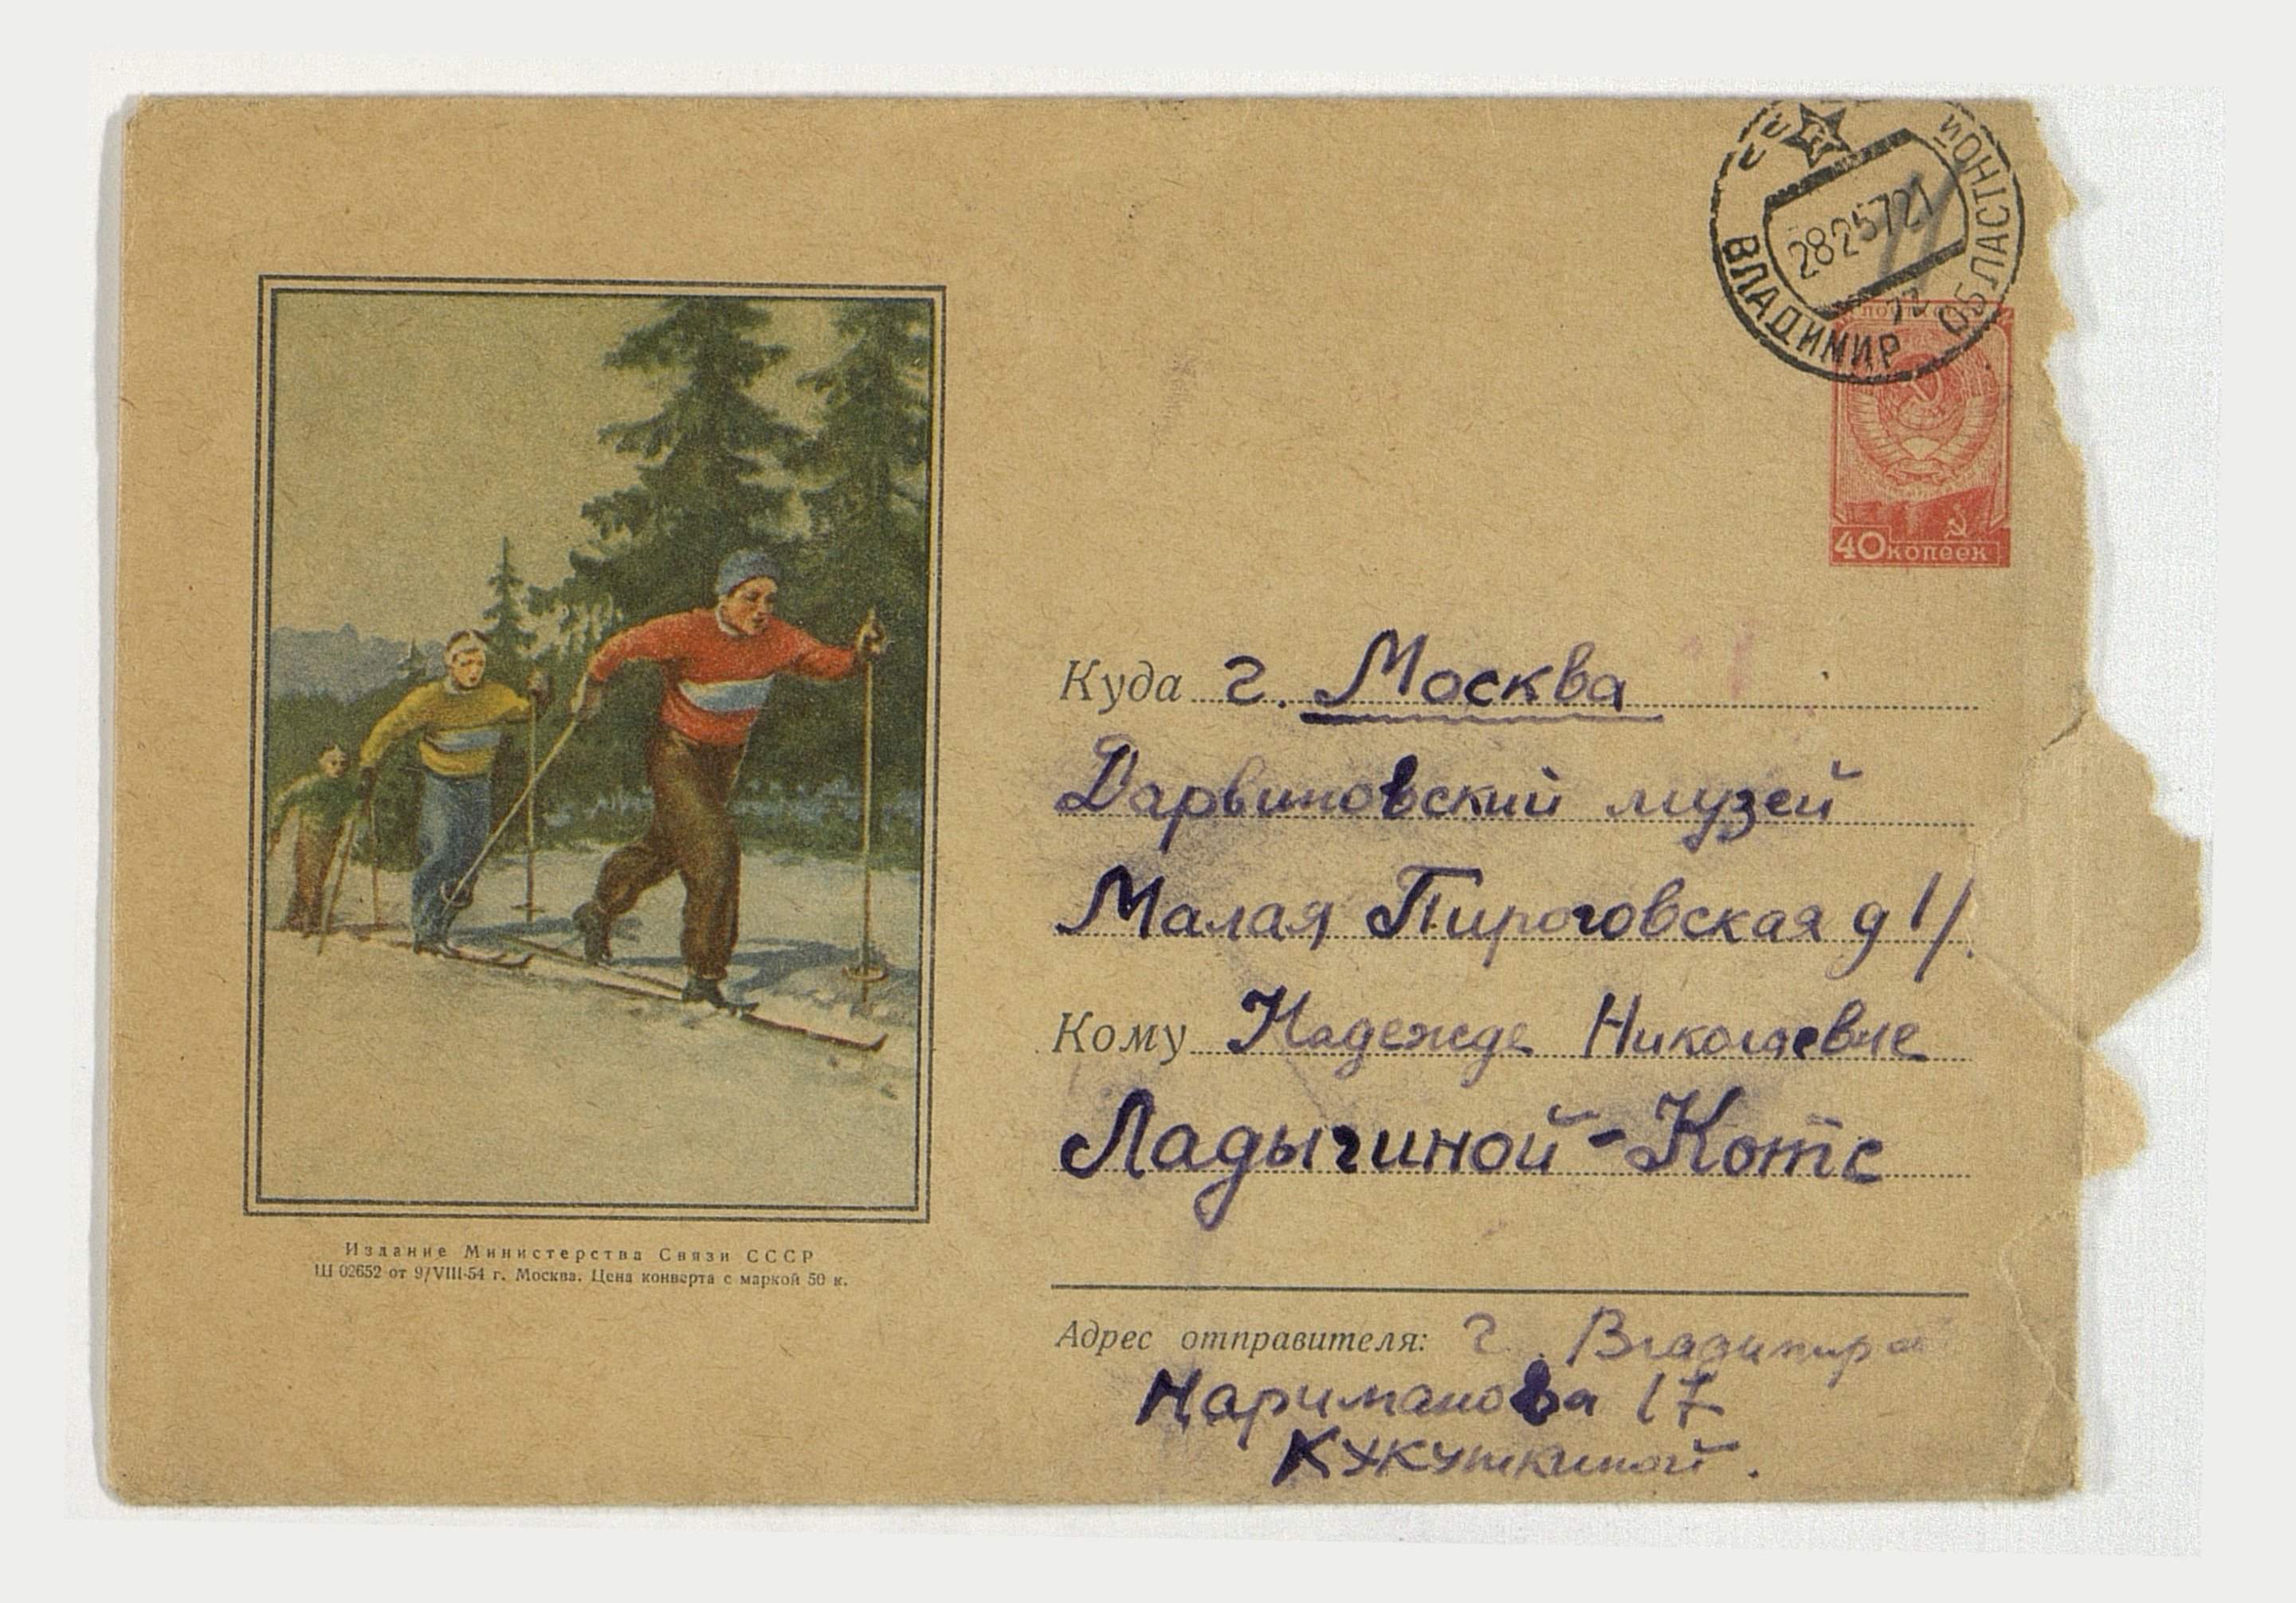 ВЛАДИМИР ОБЛАСТНОЙ
2825721
40 копеек
Куда г. Москва
Дарвиновский музей
Малая Пироговская д 1/
Кому Надежде Николаевне
Ладыгиной-Котс
Издание Министерства Связи СССР
Ш 02652 от 9/VIII-54 г. Москва. Цена конверта с маркой 50 к.
Адрес отправителя: г. Владимира
Нариманова 17
Кукушкиной.